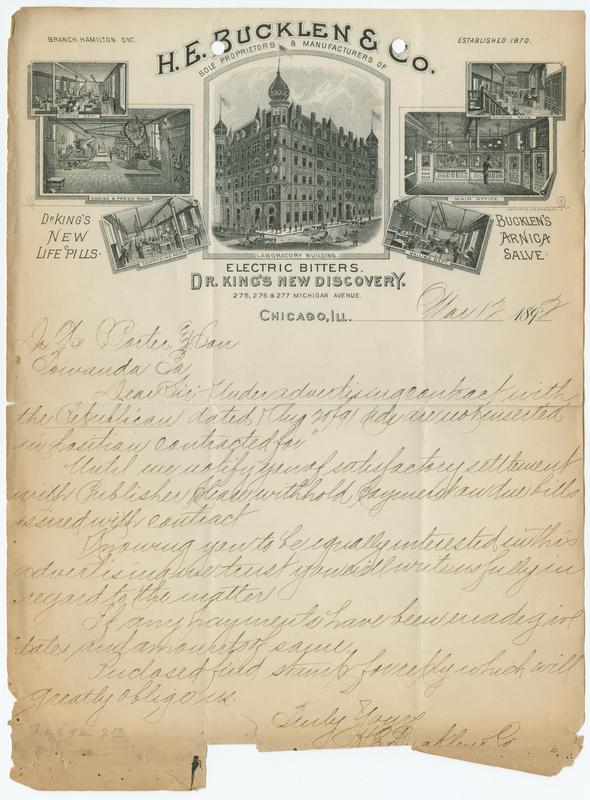 BRANCH, HAMILTON ONT.
ESTABLISHED 1870.
H. E. BUCKLEN & CO.
SOLE PROPRIETORS & MANUFACTURERS OF
ENGINE & PRESS ROOM
MAIN OFFICE
MAILING DEPT.
DR KING'S
NEW
LIFE PILLS.
BUCKLEN'S
ARNICA
SALVE.
LABORATORY BUILDING.
ELECTRIC BITTERS.
DR. KING'S NEW DISCOVERY.
275, 276 & 277 MICHIGAN AVENUE.
CHICAGO, ILL. Mar 12 1892
Porter & Son
Towanda Pa
Dear Sir: Under advertising contract with
the Republican dated Aug 20 91 "Ads are not inserted
in position contracted for"
Until we notify you of satisfactory settlement
with Publisher please withhold payment on due bills
issued with contract
Knowing you to be equally interested in this
advertising we trust you will write us fully in
regard to the matter
If any payments have been made give
dates and amounts of same.
Inclosed find stamp for reply which will
greatly oblige us.
Truly Yours
H E Bucklen & Co